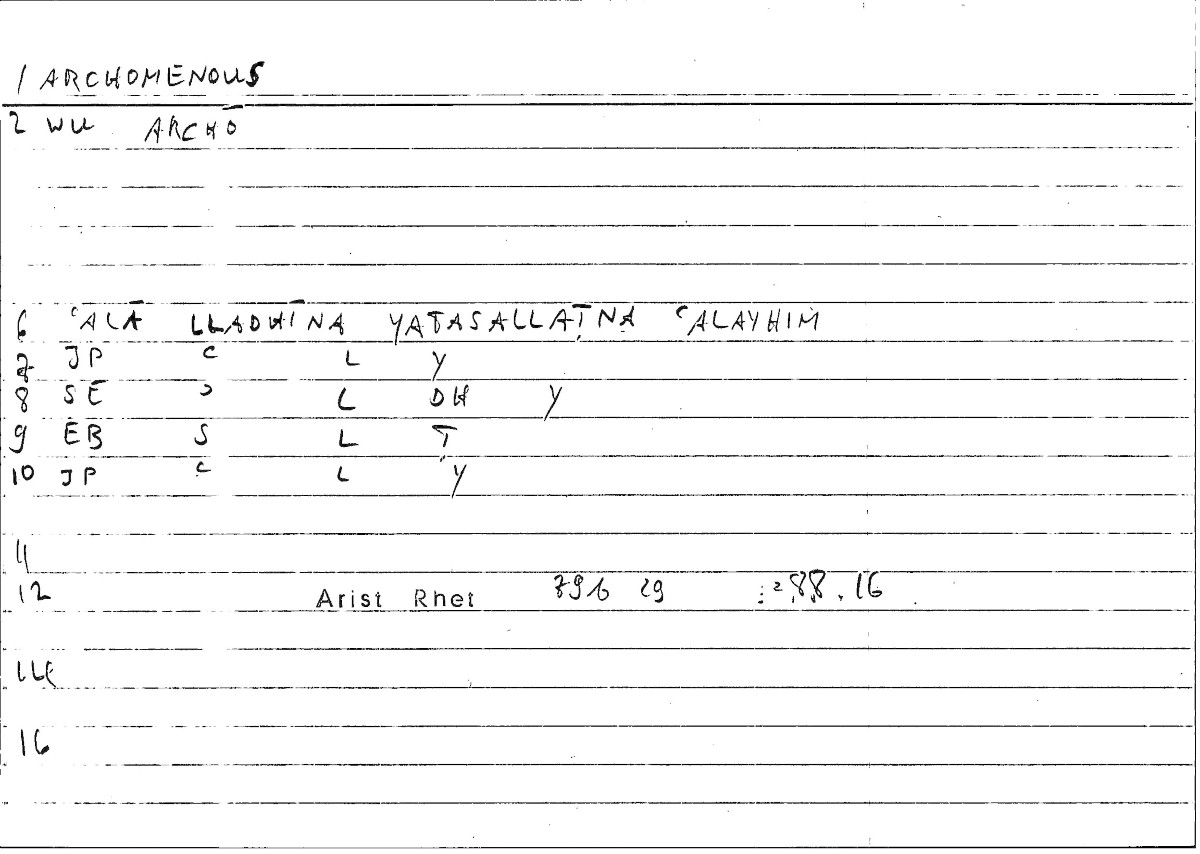 1 ARCHOMENOUS
2 WU ARCHŌ
6 ʿALĀ LLADHĪNA YATASALLAṬNA ʿALAYHIM
7 JP C L Y
8 SE ʾ L DH Y
9 EB S L Ṭ
10 JP C L Y
11
12 Arist Rhet 79b 29 := 88.16
14
16